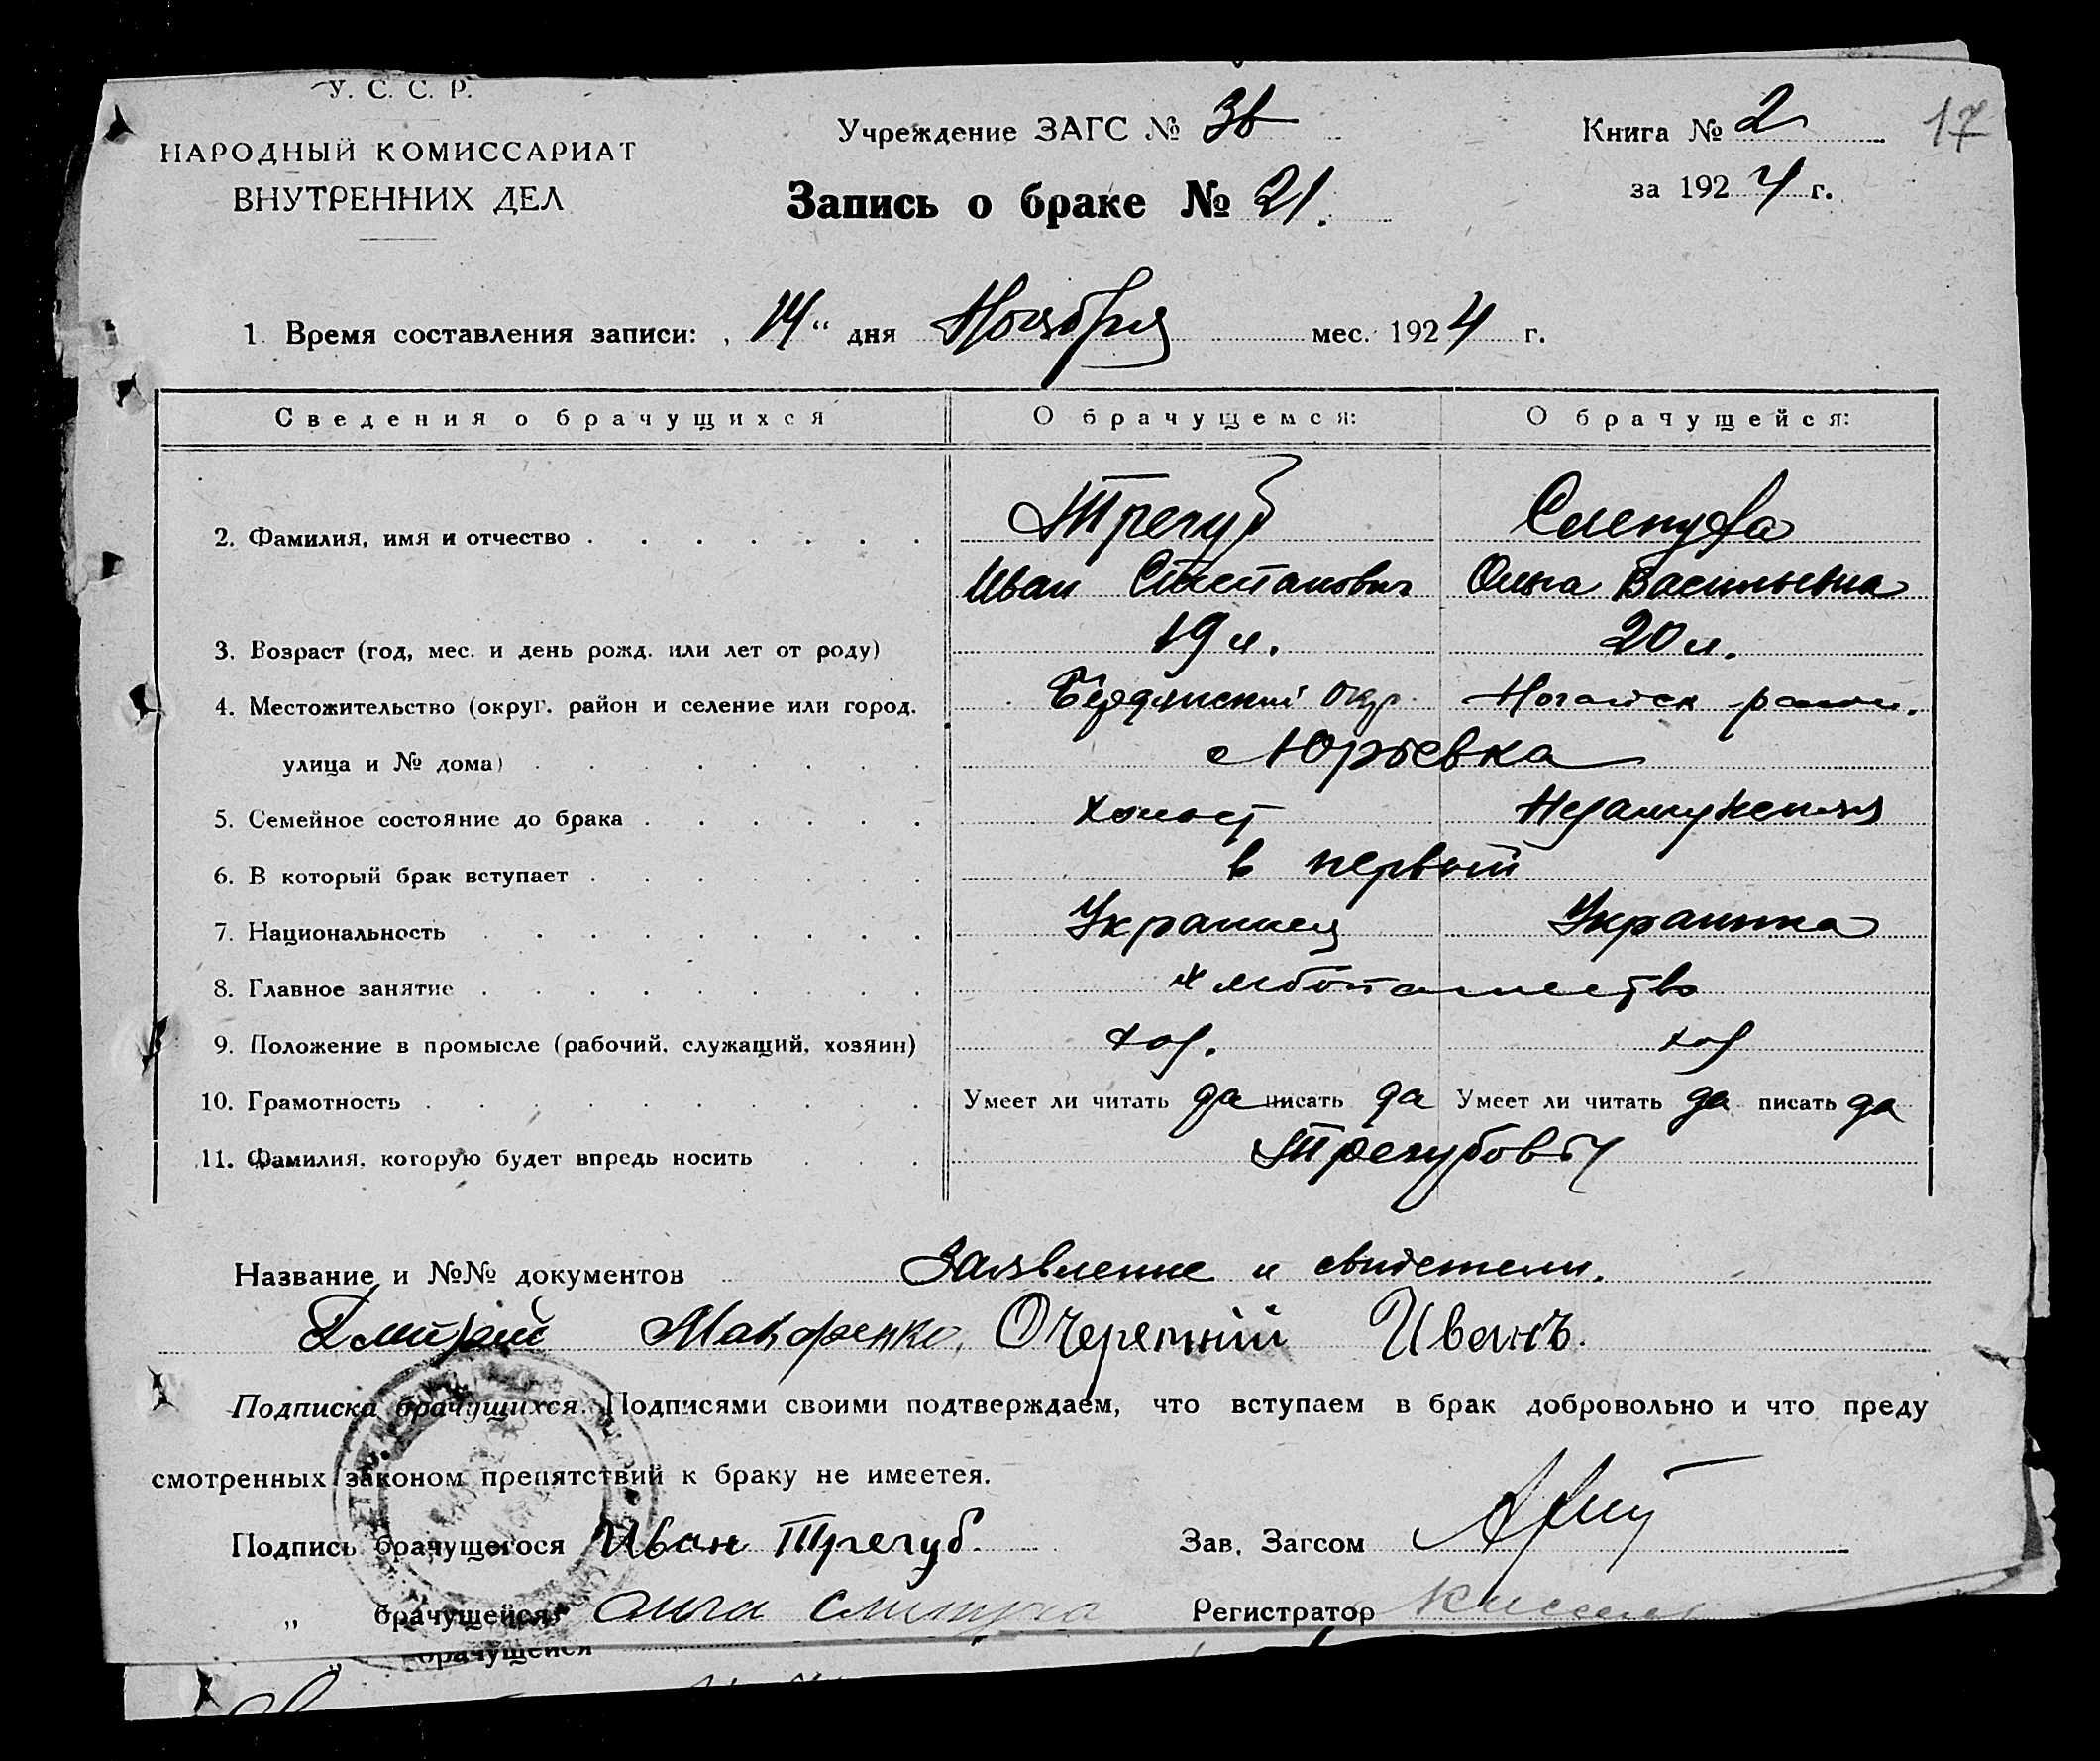 У. С. С. Р.
НАРОДНЫЙ КОМИССАРИАТ
ВНУТРЕННИХ ДЕЛ
Учреждение ЗАГС №
Запись о браке № 21.
Книга № 2
17
за 1924 г.
1. Время составления записи: „14“ дня Ноября мес. 1924 г.
Сведения о брачущихся О брачущемся: О брачущейся:
2. Фамилия, имя и отчество Трегуб
Иван Степанович Ольга Васильевна
3. Возраст (год, мес. и день рожд. или лет от роду) 19 л. 20 л.
4. Местожительство (округ, район и селение или город, Бердянский Окр. Ногайск район.
улица и № дома) с Юрьевка
5. Семейное состояние до брака холост Незамужняя
6. В который брак вступает в первый
7. Национальность Украинец Украинка
8. Главное занятие Хлебопашество
9. Положение в промысле (рабочий, служащий, хозяин) хоз. хоз
10. Грамотность Умеет ли читать да писать да Умеет ли читать да писать да
11. Фамилия, которую будет впредь носить Трегубовы
Название и №№ документов Заявление и свидетели.
Дмитрий Макаренко, Очеретній Иванъ.
Подписка брачущихся. Подписями своими подтверждаем, что вступаем в брак добровольно и что преду
смотренных законом препятствий к браку не имеетея.
Подпись брачущегося Иван Трегуб. Зав. Загсом
„ брачущейся Регистратор
„ брачущейся